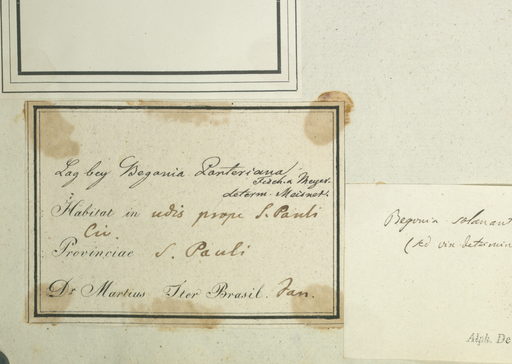 Lag bey Begonia
Fisch. & Meyer.
determ. Meisner.
Habitat in udis prope S. Pauli
Civ.
Provinciae S. Pauli
Dr Martius Iter Brasil. Jan.
Begonia
(sed vix determin
Alph. De